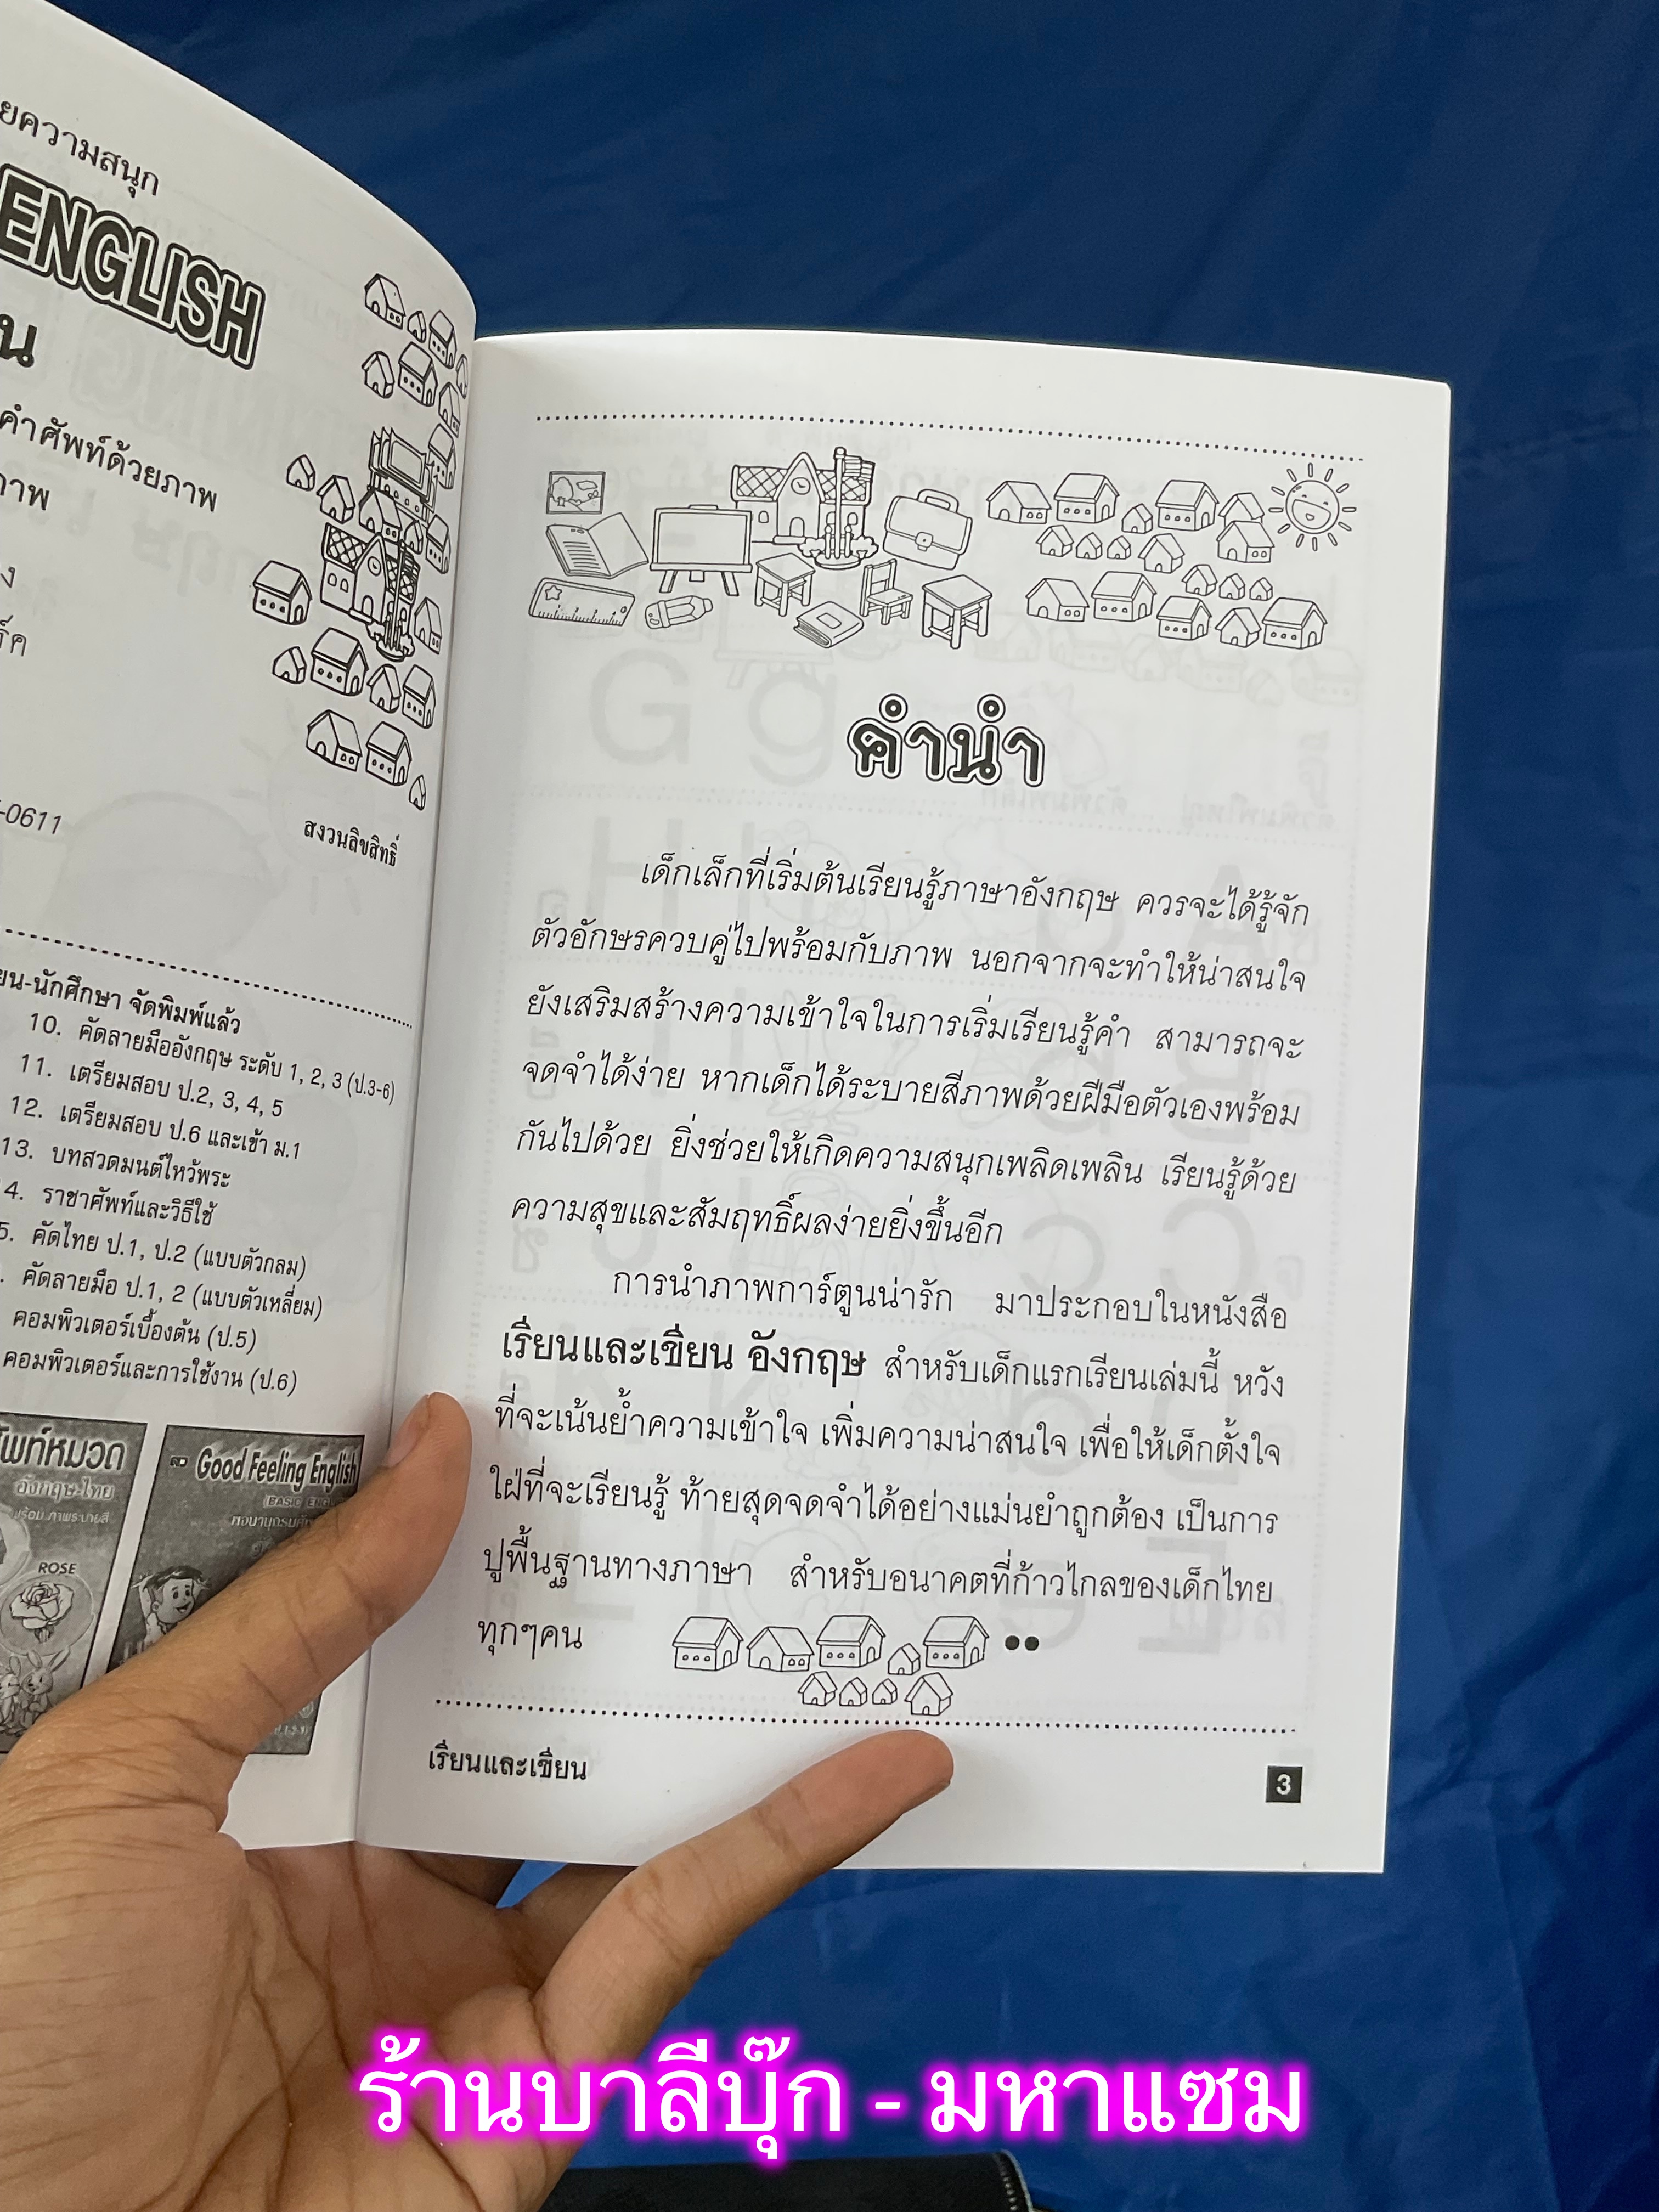 ยความสนุก
ENGLISH
น
คำศัพท์ด้วยภาพ
าพ
ง
ร์ค
-0611
สงวนลิขสิทธิ์
ยน-นักศึกษา จัดพิมพ์แล้ว
10. คัดลายมืออังกฤษ ระดับ 1, 2, 3 (ป.3-6)
11. เตรียมสอบ ป.2, 3, 4, 5
12. เตรียมสอบ ป.6 และเข้า ม.1
13. บทสวดมนต์ไหว้พระ
4. ราชาศัพท์และวิธีใช้
5. คัดไทย ป.1, ป.2 (แบบตัวกลม)
. คัดลายมือ ป.1, 2 (แบบตัวเหลี่ยม)
คอมพิวเตอร์เบื้องต้น (ป.5)
คอมพิวเตอร์และการใช้งาน (ป.6)
ัพท์หมวด
อังกฤษ-ไทย
พร้อม ภาพระบายสี
ROSE
Good Feeling English
คำนำ
เด็กเล็กที่เริ่มต้นเรียนรู้ภาษาอังกฤษ ควรจะได้รู้จัก
ตัวอักษรควบคู่ไปพร้อมกับภาพ นอกจากจะทำให้น่าสนใจ
ยังเสริมสร้างความเข้าใจในการเริ่มเรียนรู้คำ สามารถจะ
จดจำได้ง่าย หากเด็กได้ระบายสีภาพด้วยฝีมือตัวเองพร้อม
กันไปด้วย ยิ่งช่วยให้เกิดความสนุกเพลิดเพลิน เรียนรู้ด้วย
ความสุขและสัมฤทธิ์ผลง่ายยิ่งขึ้นอีก
การนำภาพการ์ตูนน่ารัก มาประกอบในหนังสือ
เรียนและเขียน อังกฤษ สำหรับเด็กแรกเรียนเล่มนี้ หวัง
ที่จะเน้นย้ำความเข้าใจ เพิ่มความน่าสนใจ เพื่อให้เด็กตั้งใจ
ใฝ่ที่จะเรียนรู้ ท้ายสุดจดจำได้อย่างแม่นยำถูกต้อง เป็นการ
ปูพื้นฐานทางภาษา สำหรับอนาคตที่ก้าวไกลของเด็กไทย
ทุกๆคน
เรียนและเขียน
3
ร้านบาลีบุ๊ก - มหาแซม